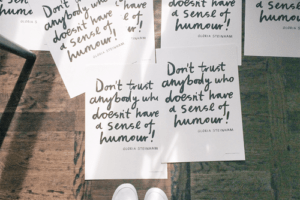 doesn't have
a sense of
humour!
GLORIA STEINEM
Don't trust
anybody who
doesn't have
a sense of
humour!
doesn't have
a sense of
humour!
GLORIA STEINEM
doesn't have
a sense of
humour!
Don't trust
anybody who
doesn't have
a sense of
humour!
GLORIA STEINEM
Don't trust
anybody who
doesn't have
a sense of
humour!
GLORIA STEINEM